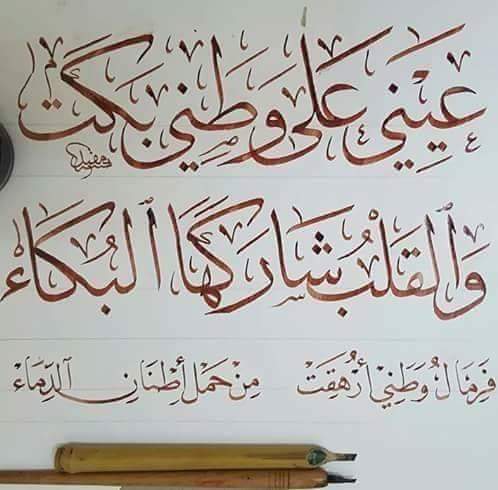 عَيْنِي عَلَى وَطَنِي بَكَتْ
وَالقَلْبُ شَارَكَهَا البُكَاءْ
فَرِمَالُ وَطَنِي أُرْهِقَتْ مِنْ حَمْلِ أَطْنَانِ الدِّمَاءْ